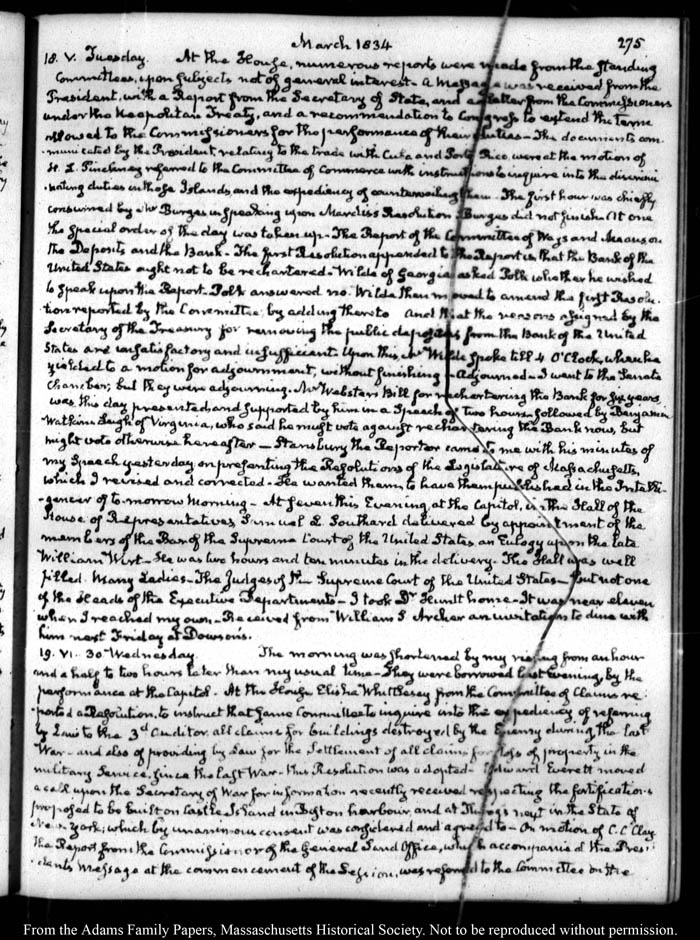 March 1834
275
18. V. Tuesday. At the House, numerous reports were made from the standing
Committees, upon subjects not of general interest - A Message was received from the
President, with a Report from the Secretary of State, and a Letter from the Commissioners
under the Neapolitan Treaty, and a recommendation to Congress to extend the term
allowed to the Commissioners for the performance of their duties - The documents com-
-municated by the President, relating to the trade with Cuba and Porto Rico, were at the motion of
H. L. Pinckney referred to the Committee of Commerce with instructions to inquire into the discrimi-
-nating duties in those Islands, and the expediency of countervailing them - The first hour was chiefly
consumed by Mr Burges in speaking upon Mardis's Resolution. Burges did not finish. At one
the special order of the day was taken up - The Report of the Committee of Ways and Means on
the Deposits and the Bank - The first Resolution appended to the Report is that the Bank of the
United States ought not to be rechartered - Wilde of Georgia asked Polk whether he wished
to speak upon the Report - Polk answered no. Wilde then moved to amend the first Resolu-
-tion reported by the Committee, by adding thereto And that the reasons assigned by the
Secretary of the Treasury for removing the public deposits from the Bank of the United
States are unsatisfactory and insufficient. Upon this, Mr Wilde spoke till 4 O'Clock, when he
yielded to a motion for adjournment, without finishing - Adjourned - I went to the Senate
Chamber; but they were adjourning. Mr Webster's Bill for rechartering the Bank for six years
was this day presented and supported by him in a Speech of two hours - followed by Benjamin
Watkins Leigh of Virginia, who said he must vote against rechartering the Bank now, but
might vote otherwise hereafter - Stansbury the Reporter came to me with his minutes of
my Speech yesterday on presenting the Resolutions of the Legislature of Massachusetts,
which I revised and corrected - He wanted them to have them published in the Intelli-
-gencer of to-morrow Morning - At seven this Evening, at the Capitol, in the Hall of the
House of Representatives, Samuel L. Southard delivered by appointment of the
members of the Bar of the Supreme Court of the United States an Eulogy upon the late
William Wirt - He was two hours and ten minutes in the delivery. The Hall was well
filled. Many Ladies - The Judges of the Supreme Court of the United States - but not one
of the Heads of the Executive Departments - I took Dr Huntt home - It was near eleven
when I reached my own - Received from William S Archer an invitation to dine with
him next Friday at Dowson's.
19. VI. 30 Wednesday. The morning was shortened by my rising from an hour
and a half to two hours later than my usual time - They were borrowed last evening, by the
performance at the Capitol - At the House Elisha Whittlesey from the Committee of Claims re-
-ported a Resolution, to instruct that same Committee to inquire into the expediency of referring
by Law to the 3d Auditor, all claims for buildings destroyed by the Enemy during the last
War - and also of providing by Law for the settlement of all claims for loss of property in the
military service, since the last War - this Resolution was adopted - Edward Everett moved
a call upon the Secretary of War for information recently received respecting the fortifications
proposed to be built on Castle Island in Boston harbour, and at Throgs neck in the State of
New-York; which by unanimous consent was considered and agreed to - On motion of C. C. Clay
the Report from the Commissioner of the General Land Office, which accompanied the Presi-
-dents Message at the commencement of the Session, was referred to the Committee on the
From the Adams Family Papers, Massachusetts Historical Society. Not to be reproduced without permission.